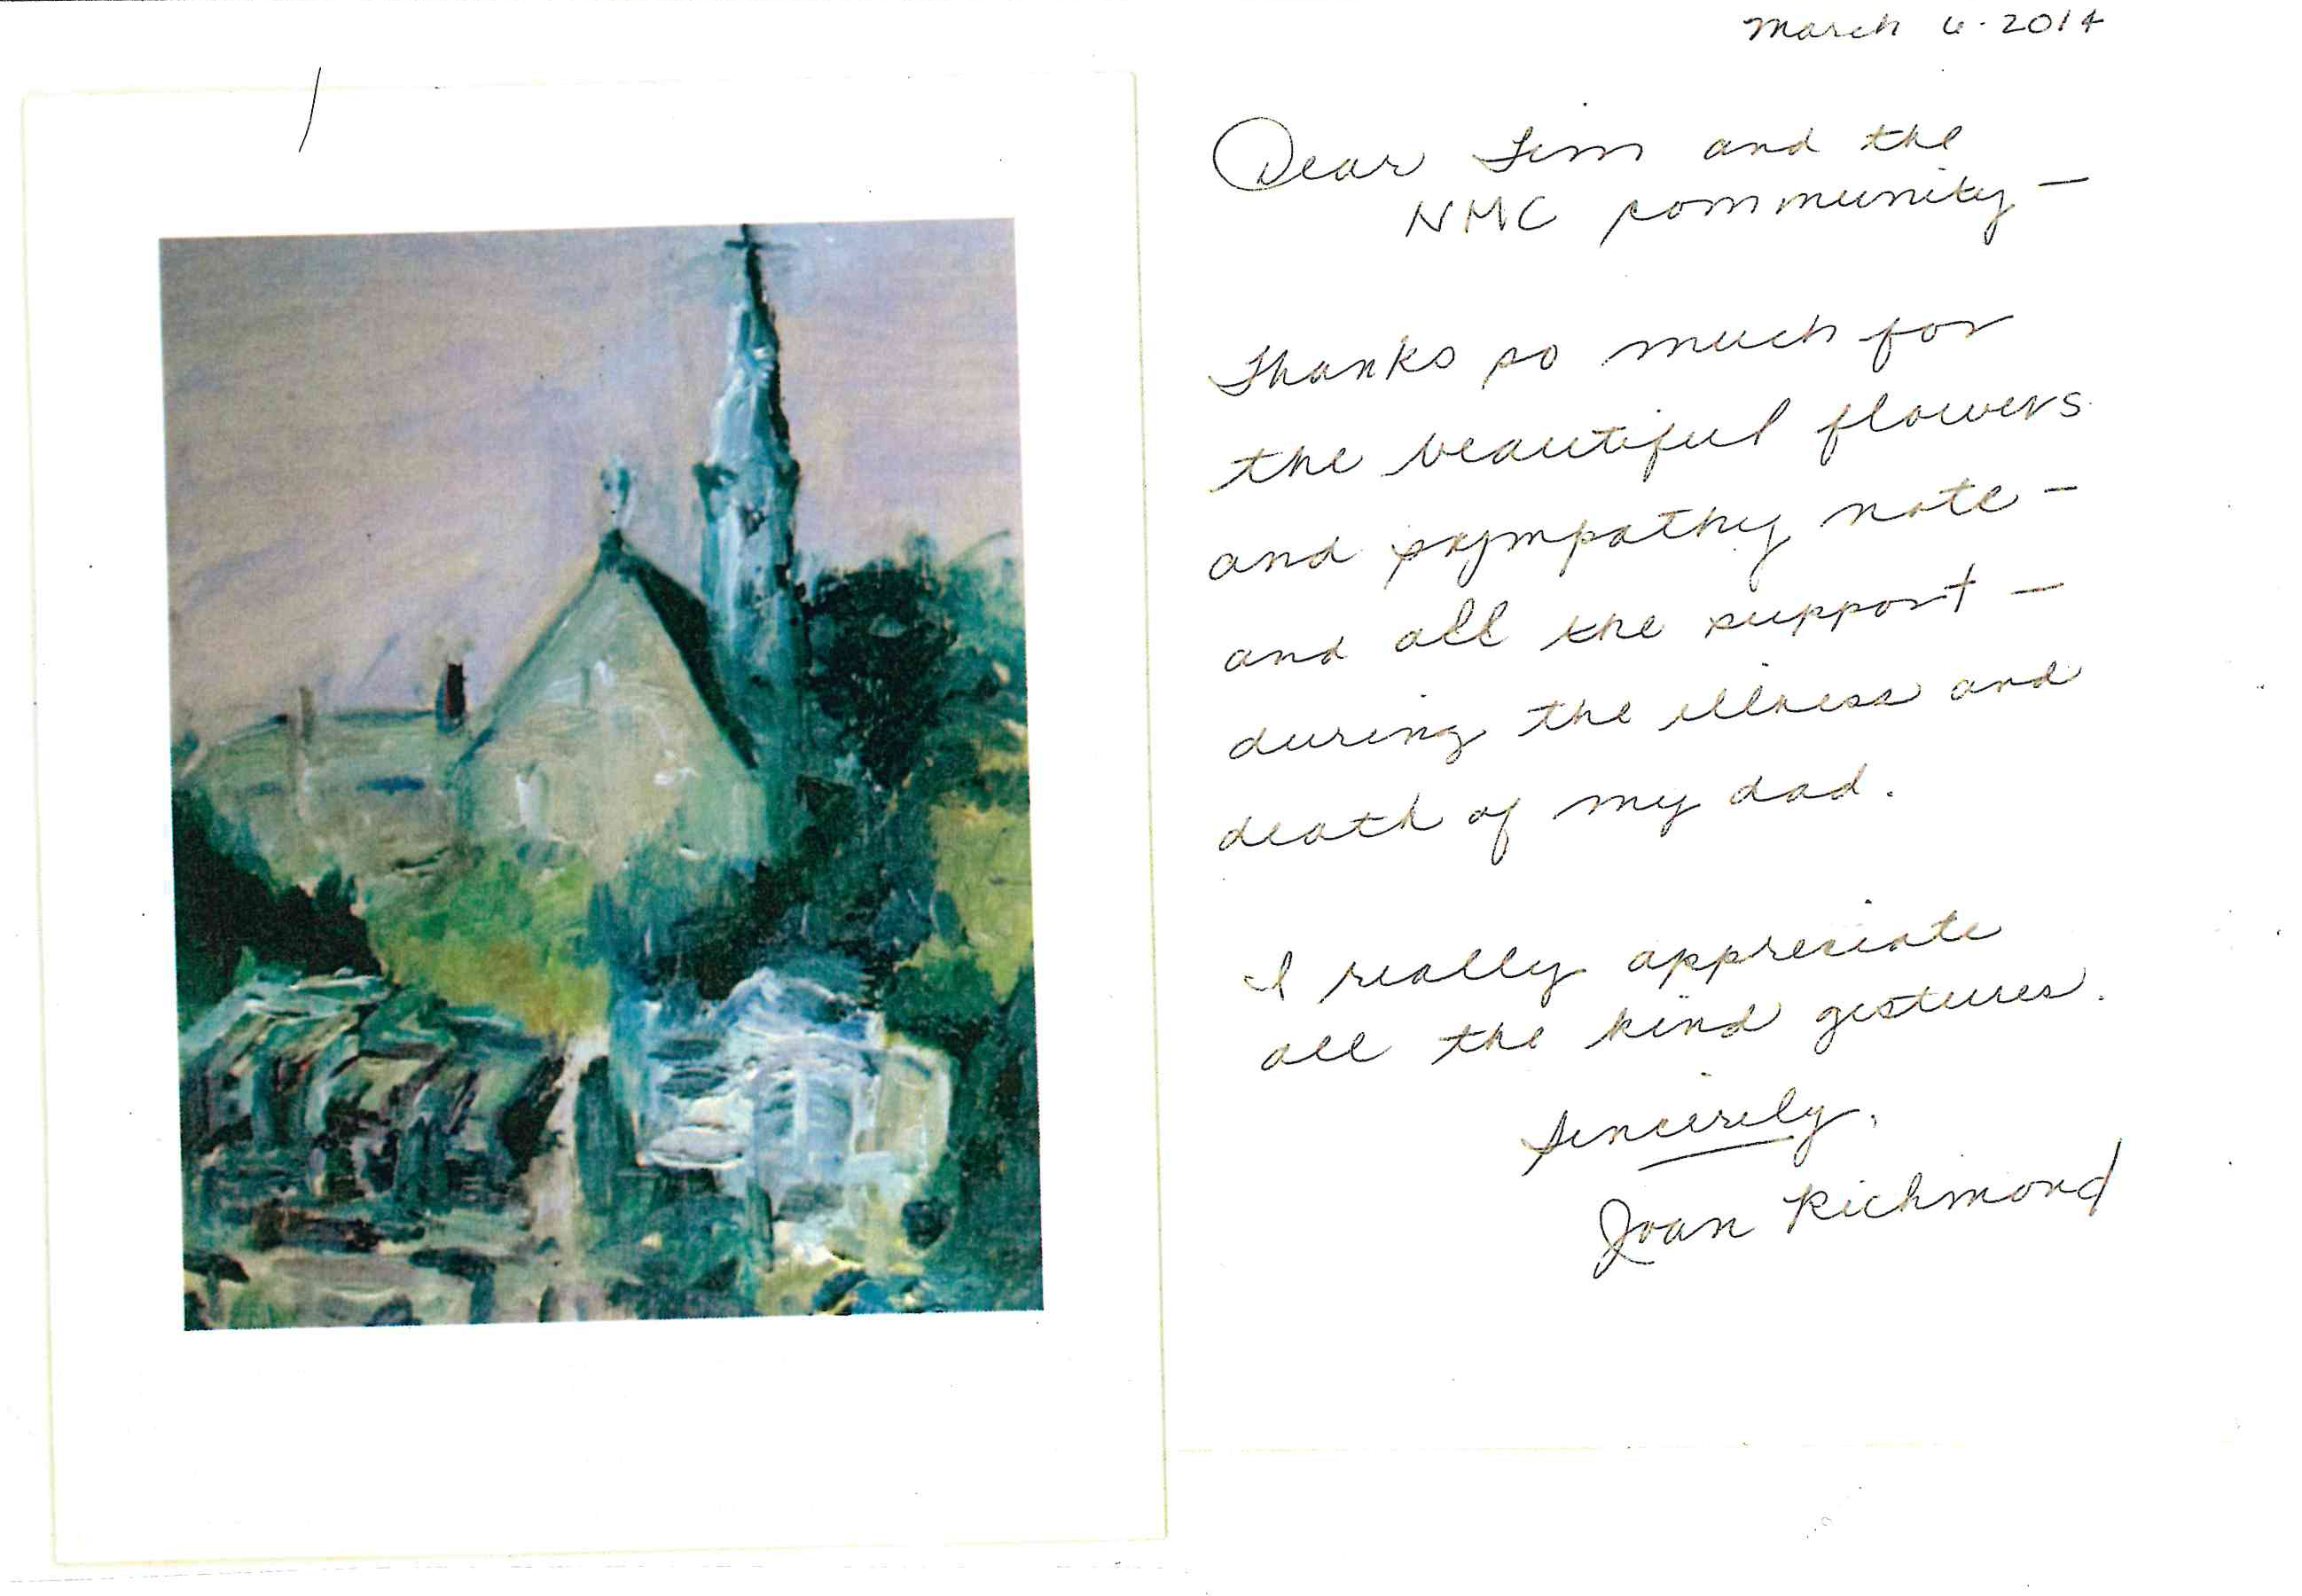 March 6·2014
Dear Tim and the
NMC community —
Thanks so much for
the beautiful flowers
and sympathy note —
and all the support —
during the illness and
death of my dad.
I really appreciate
all the kind gestures.
Sincerely,
Joan Richmond